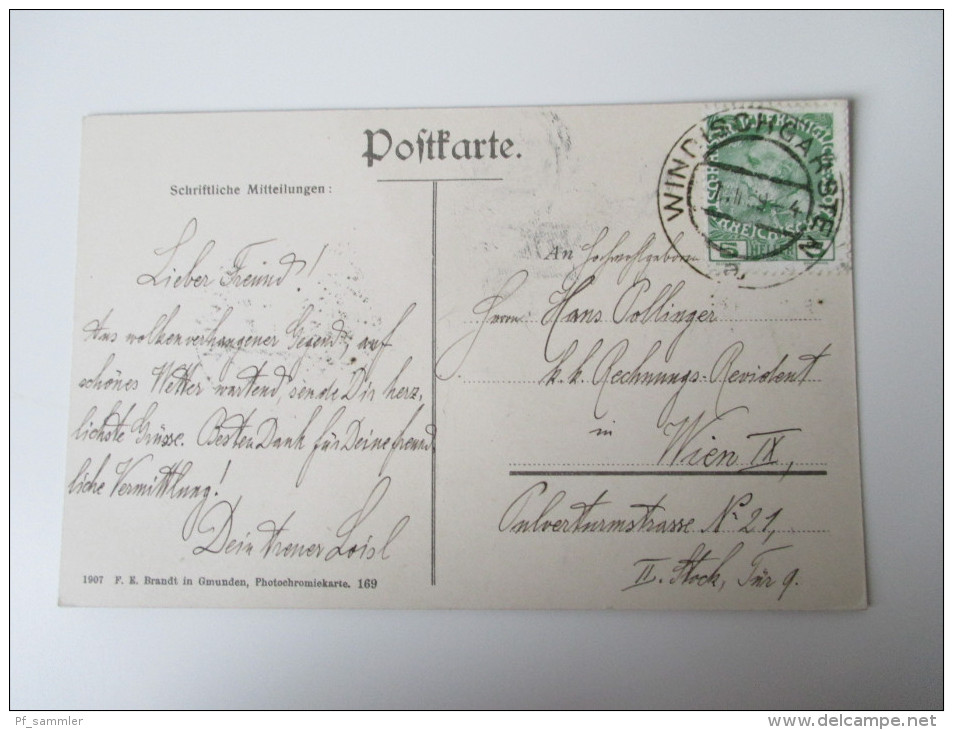 Postkarte.
Schriftliche Mitteilungen:
WINDISCHGARSTEN
5 HELLER
Lieber Freund!
Aus wolkenverhangener Gegend, auf
schönes Wetter wartend, sende Dir herz-
lichste Grüsse. Besten Dank für Deine freund
liche Vermittlung!
Dein treuer Loisl
An Hochwohlgeboren
Herrn Hans Pollinger
k.k. Rechnungs-Revident
in
Wien IX,
Pulverturmstrasse No 21,
II. Stock, Tür 9.
1907 F. E. Brandt in Gmunden, Photochromiekarte. 169
Pf_sammler
www.delcampe.net